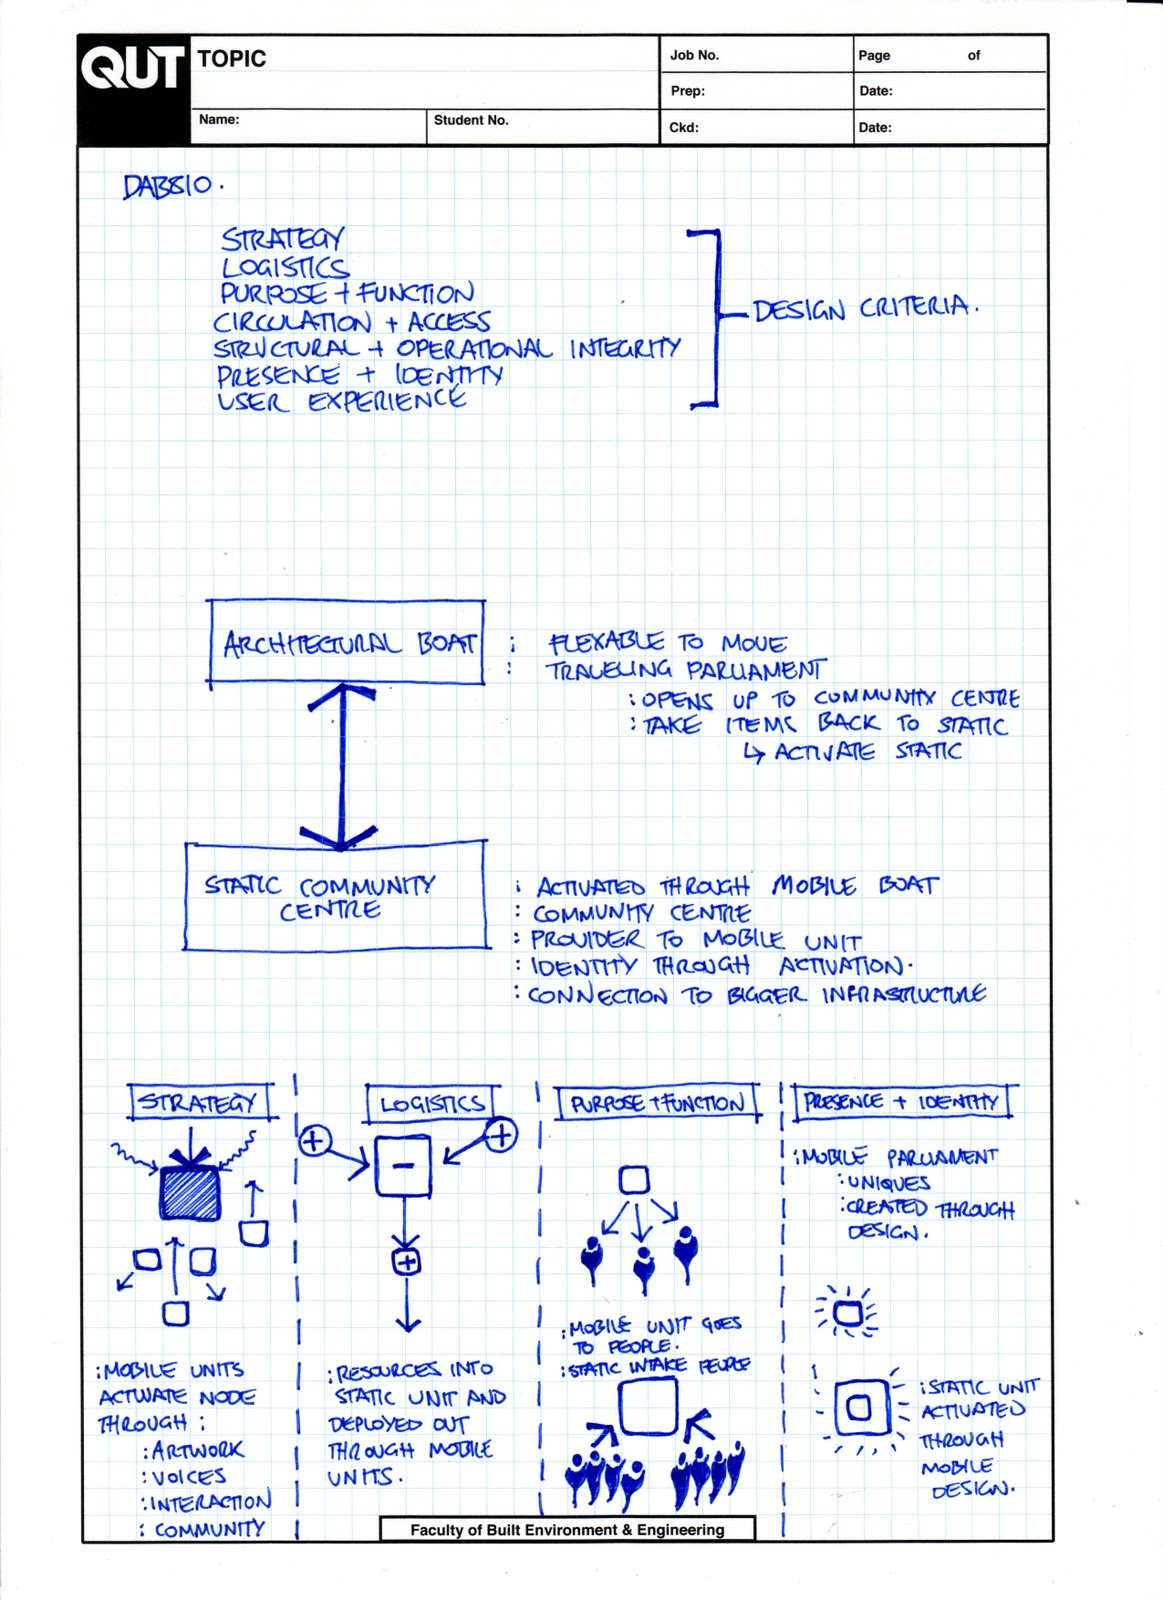 QUT
TOPIC
Job No.
Page of
Prep:
Date:
Name:
Student No.
Ckd:
Date:
DAB810.
STRATEGY
LOGISTICS
PURPOSE + FUNCTION
CIRCULATION + ACCESS
STRUCTURAL + OPERATIONAL INTEGRITY
PRESENCE + IDENTITY
USER EXPERIENCE
DESIGN CRITERIA.
ARCHITECTURAL BOAT
: FLEXABLE TO MOVE
: TRAVELING PARLIAMENT
: OPENS UP TO COMMUNITY CENTRE
: TAKE ITEMS BACK TO STATIC
↳ ACTIVATE STATIC
STATIC COMMUNITY
CENTRE
: ACTIVATED THROUGH MOBILE BOAT
: COMMUNITY CENTRE
: PROVIDER TO MOBILE UNIT
: IDENTITY THROUGH ACTIVATION.
: CONNECTION TO BIGGER INFRASTRUCTURE
STRATEGY
: MOBILE UNITS
ACTIVATE NODE
THROUGH :
: ARTWORK
: VOICES
: INTERACTION
: COMMUNITY
LOGISTICS
: RESOURCES INTO
STATIC UNIT AND
DEPLOYED OUT
THROUGH MOBILE
UNITS.
PURPOSE + FUNCTION
: MOBILE UNIT GOES
TO PEOPLE.
: STATIC INTAKE PEOPLE
PRESENCE + IDENTITY
: MOBILE PARLIAMENT
: UNIQUES
: CREATED THROUGH
DESIGN.
: STATIC UNIT
ACTIVATED
THROUGH
MOBILE
DESIGN.
Faculty of Built Environment & Engineering